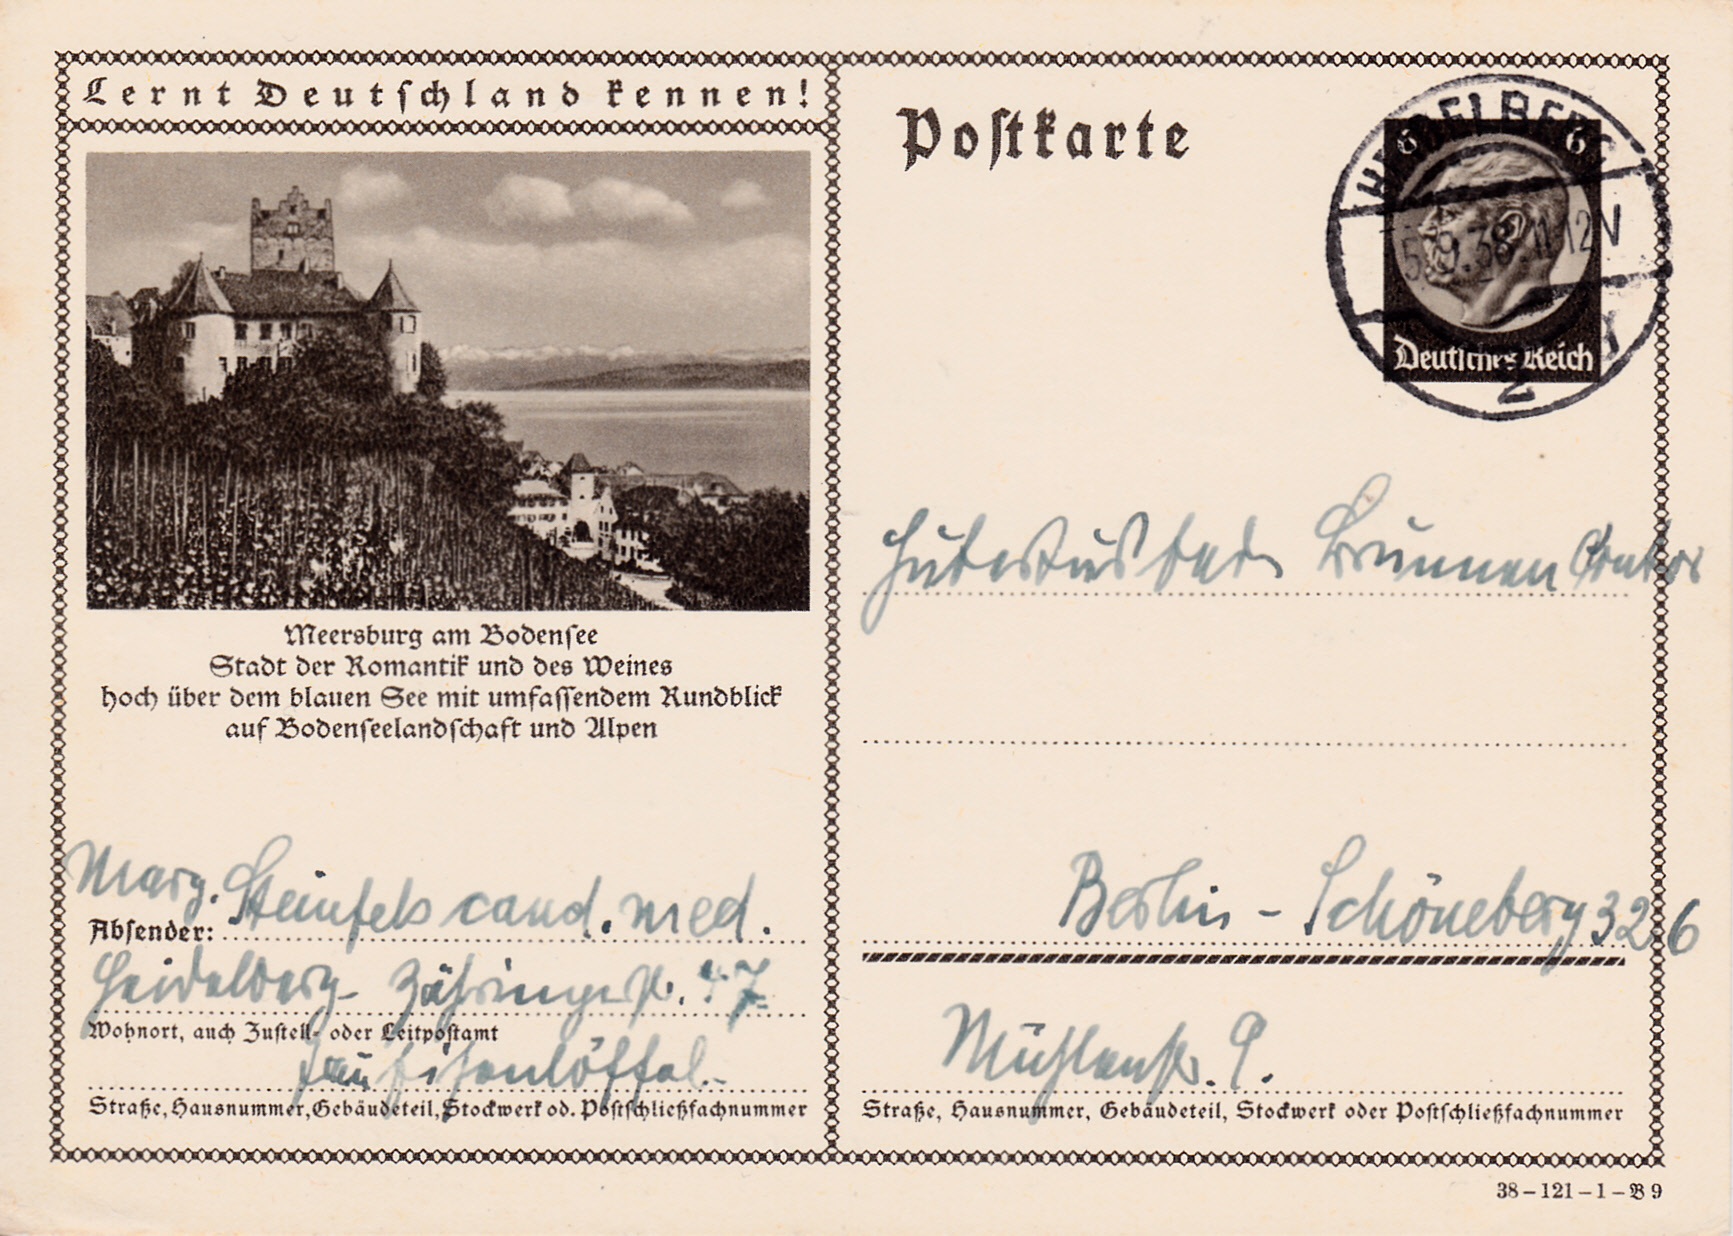 Lernt Deutschland kennen!
Meersburg am Bodensee
Stadt der Romantik und des Weines
hoch über dem blauen See mit umfassendem Rundblick
auf Bodenseelandschaft und Alpen
Marg. Steinfels cand. med.
Absender:
Heidelberg Zähringerstr. 47
Wohnort, auch Zustell- oder Leitpostamt
Eisenlöffel
Straße, Hausnummer, Gebäudeteil, Stockwerk od. Postschließfachnummer
Postkarte
6 6
HEIDELBERG
5.9.38.11-12V
2
Deutsches Reich
Hubertusbader Brunnen
Berlin-Schöneberg
Mühlenstr. 9.
Straße, Hausnummer, Gebäudeteil, Stockwerk oder Postschließfachnummer
38-121-1-B 9